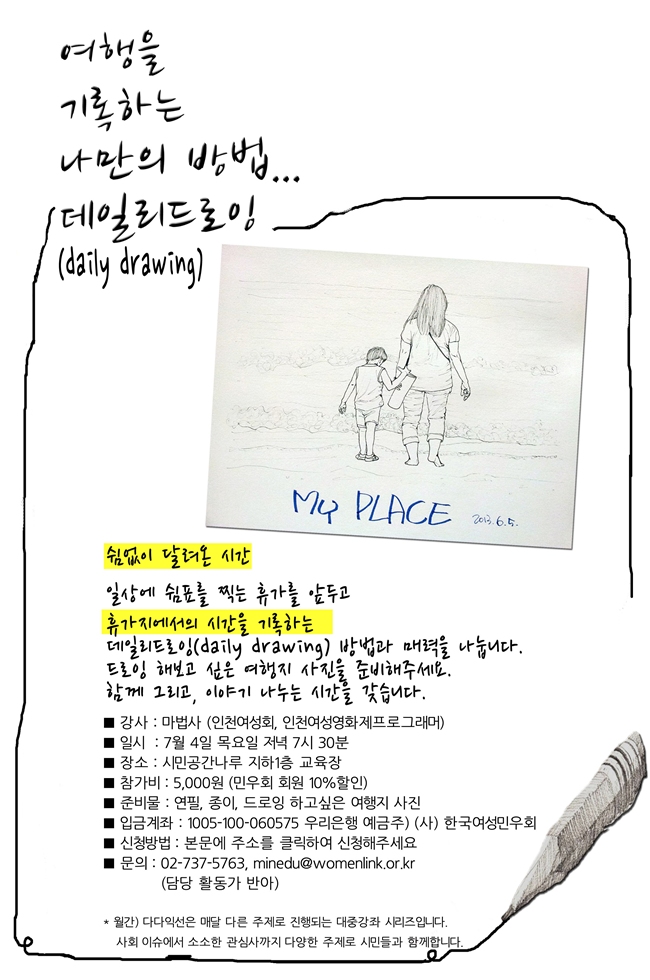 여행을
기록하는
나만의 방법...
데일리드로잉
(daily drawing)
My PLACE 2013.6.5.
쉼없이 달려온 시간
일상에 쉼표를 찍는 휴가를 앞두고
휴가지에서의 시간을 기록하는
데일리드로잉(daily drawing) 방법과 매력을 나눕니다.
드로잉 해보고 싶은 여행지 사진을 준비해주세요.
함께 그리고, 이야기 나누는 시간을 갖습니다.
■ 강사 : 마법사 (인천여성회, 인천여성영화제프로그래머)
■ 일시 : 7월 4일 목요일 저녁 7시 30분
■ 장소 : 시민공간나루 지하1층 교육장
■ 참가비 : 5,000원 (민우회 회원 10%할인)
■ 준비물 : 연필, 종이, 드로잉 하고싶은 여행지 사진
■ 입금계좌 : 1005-100-060575 우리은행 예금주) (사) 한국여성민우회
■ 신청방법 : 본문에 주소를 클릭하여 신청해주세요
■ 문의 : 02-737-5763, minedu@womenlink.or.kr
(담당 활동가 반아)
* 월간) 다다익선은 매달 다른 주제로 진행되는 대중강좌 시리즈입니다.
사회 이슈에서 소소한 관심사까지 다양한 주제로 시민들과 함께합니다.